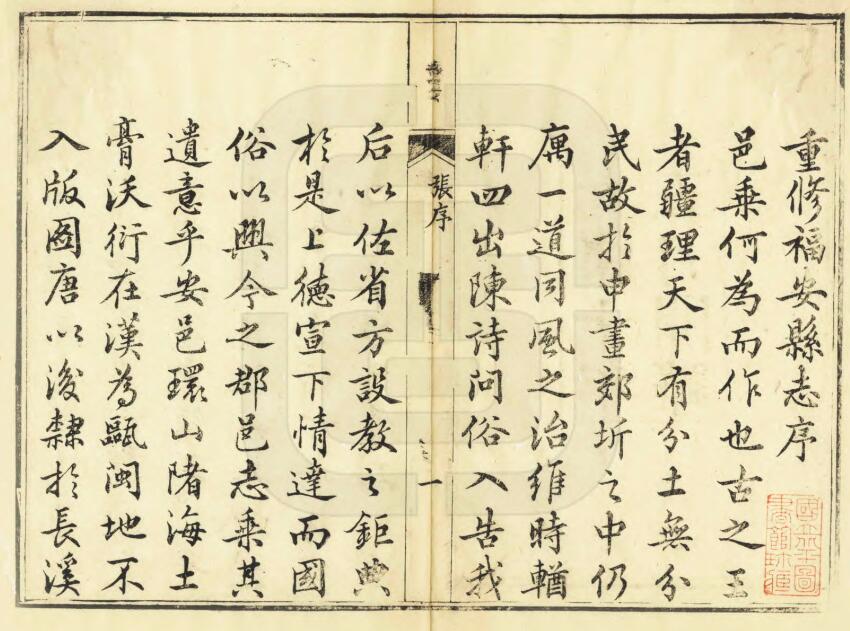 重修福安縣志序
邑乗何為而作也古之王
者疆理天下有分土無分
民故於申畫郊圻之中仍
厲一道同風之治維時輶
軒四出陳詩問俗入告我
張序
一
后以佐省方設教之鉅典
於是上德宣下情達而國
俗以興今之郡邑志乗其
遺意乎安邑環山陼海土
膏沃衍在漢為甌閩地不
入版圖唐以後隸於長溪